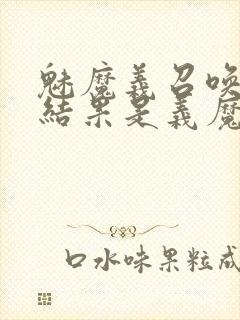 魅魔義召喚
結果是義魔
口水味果粒成